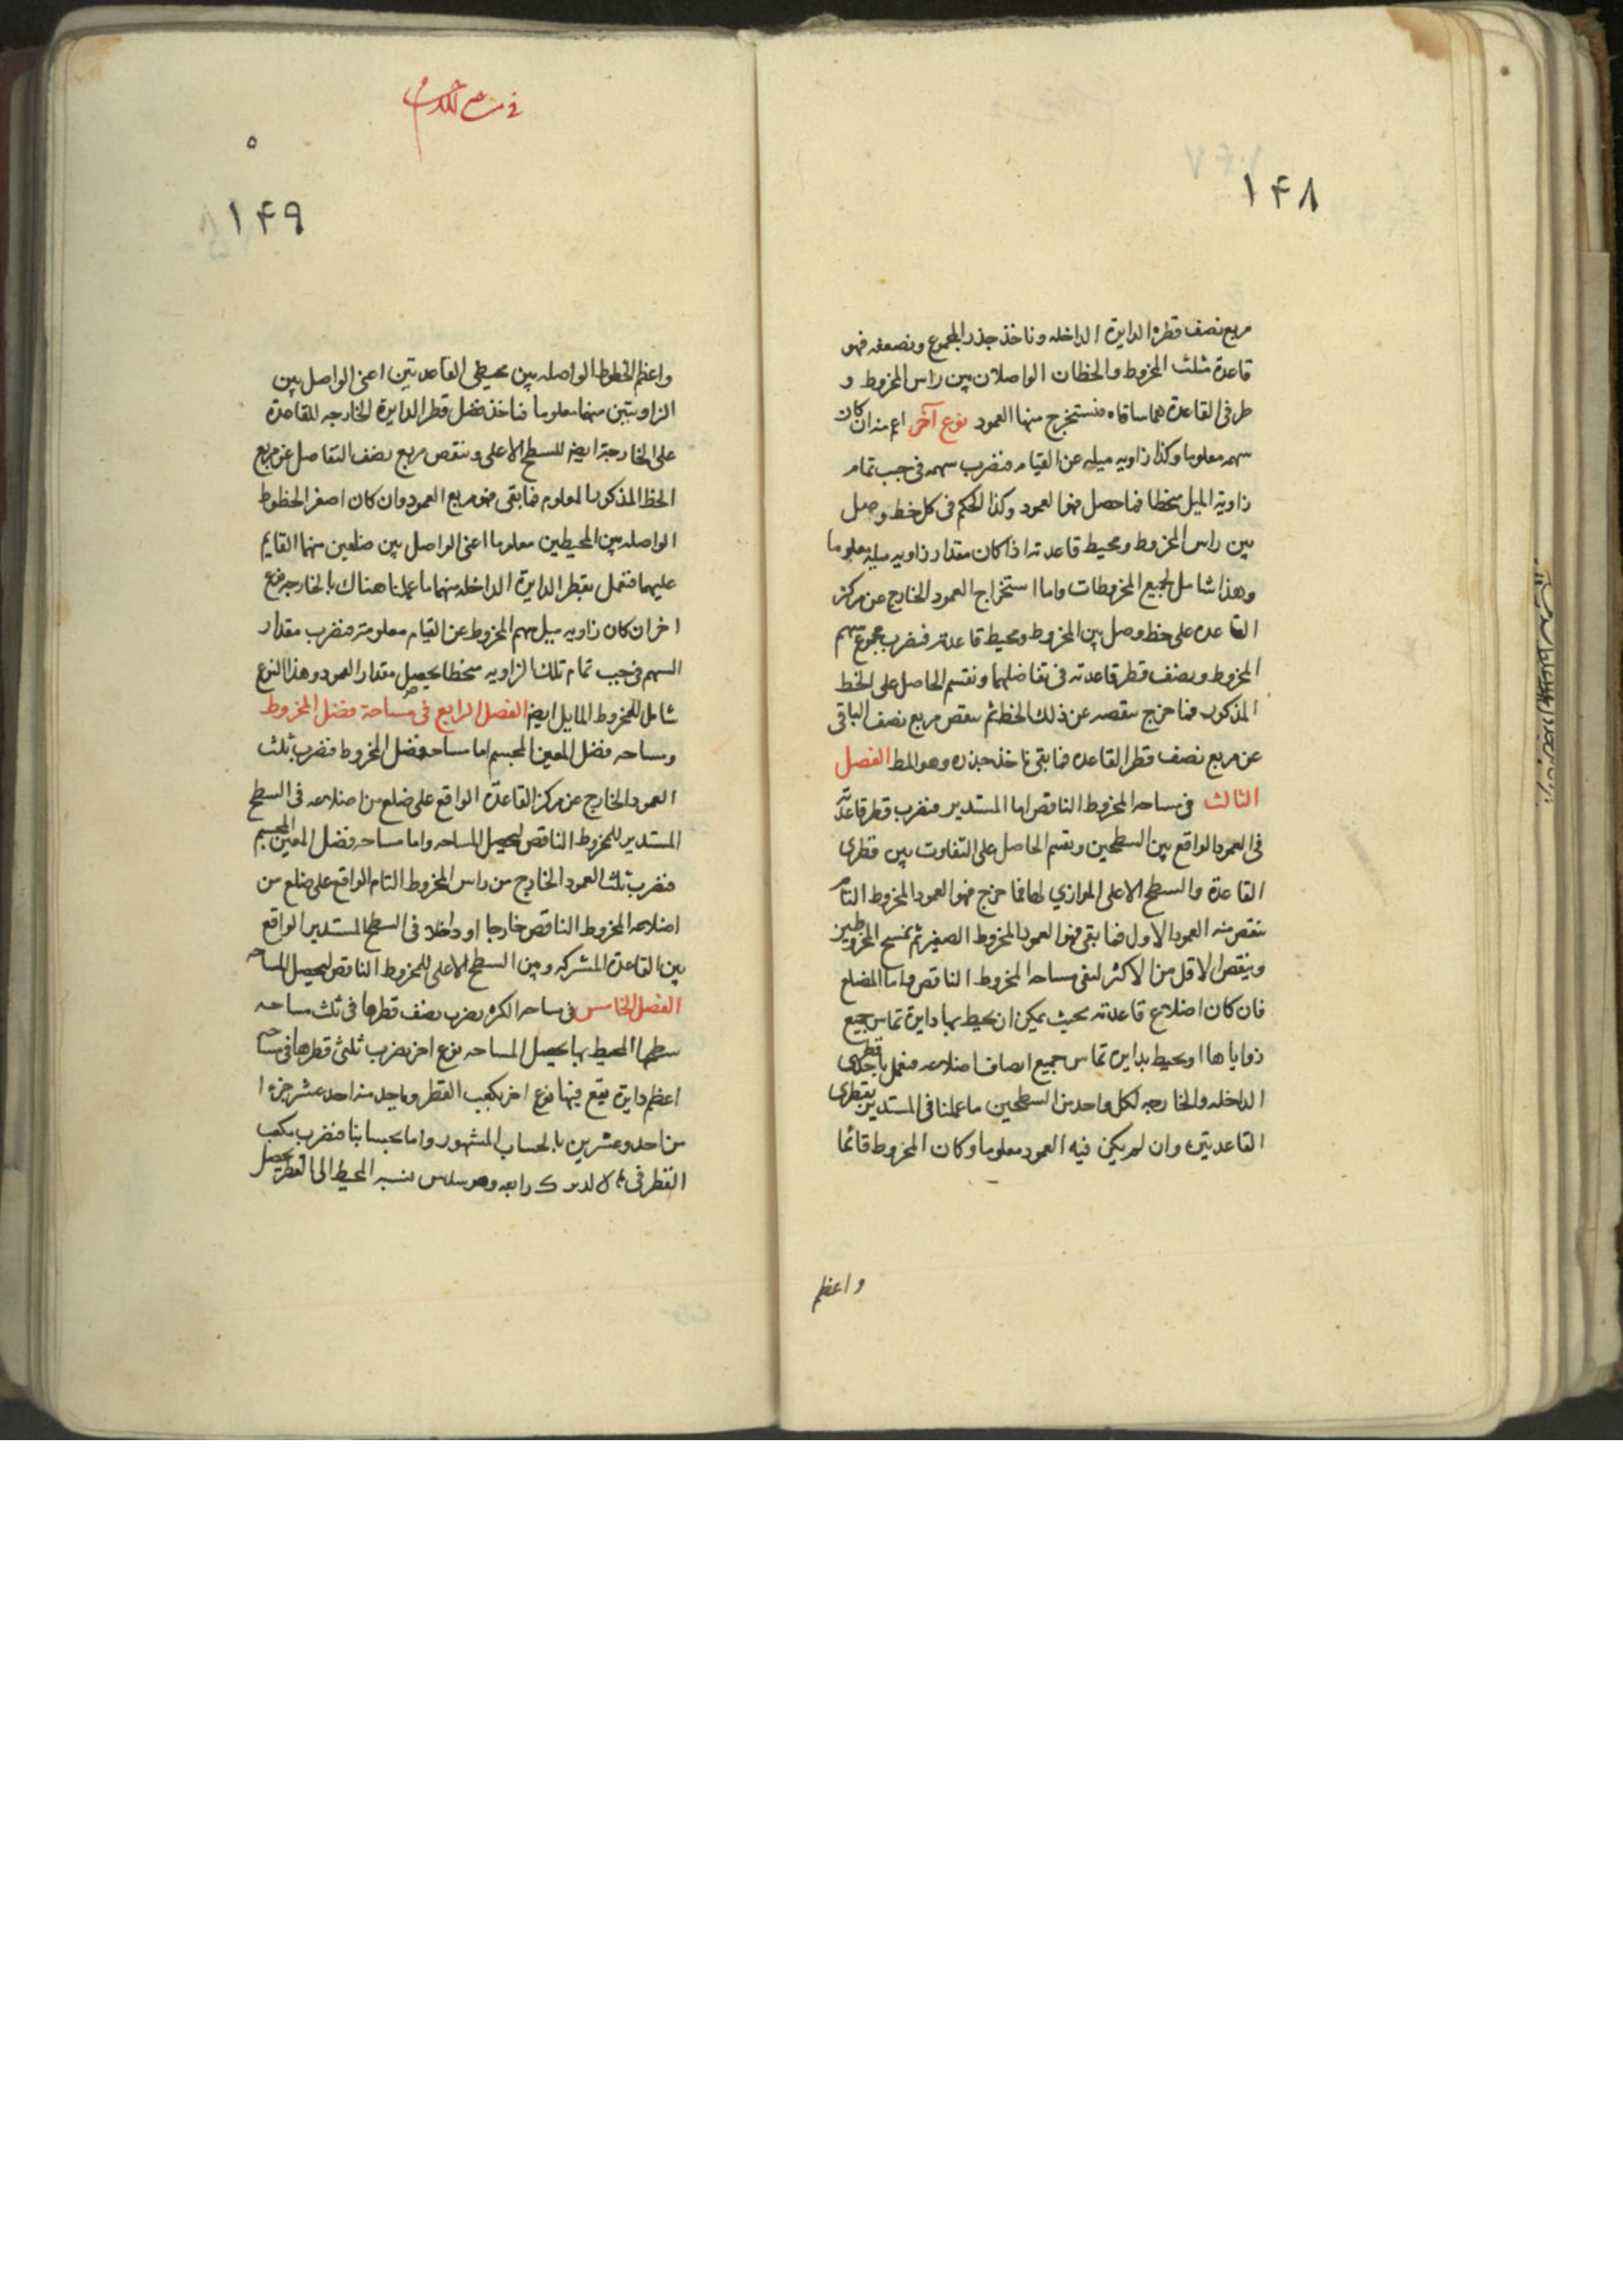 ۱۴۸
مربع نصف قطر الدايرة الداخله وناخذ جذر المجموع ونضعفه فهو
قاعدة مثلث المخروط والخطان الواصلان بين راس المخروط و
طرفى القاعدة هما ساقاه فنستخرج منها العمود نوع آخر اعم منه ان كان
سهمه معلوما وكذا زاويه ميله عن القيام فنضرب سهمه فى جيب تمام
زاوية الميل منحطا فما حصل فهو العمود وكذا الحكم فى كل خط وصل
بين راس المخروط ومحيط قاعدته اذا كان مقدار زاويه ميله معلوما
وهذا شامل لجميع المخروطات واما استخراج العمود الخارج عن مركز
القاعده على خط وصل بين المخروط ومحيط قاعدته فنضرب مجموع سهم
المخروط ونصف قطر قاعدته فى تفاضلهما ونقسم الحاصل على الخط
المذكور فما خرج ننقصه عن ذلك الخط ثم ننقص مربع نصف الباقى
عن مربع نصف قطر القاعده فما بقى ناخذ جذره وهو المط الفصل
الثالث فى مساحه المخروط الناقص اما المستدير فنضرب قطر قاعدته
فى العمود الواقع بين السطحين ونقسم الحاصل على التفاوت بين قطرى
القاعدة والسطح الاعلى الموازي لها فما خرج فهو العمود المخروط التام
ننقص منه العمود الاول فما بقى فهو العمود المخروط الصغير ثم نمسح المخروطين
وينقص الاقل من الاكثر لتبقى مساحه المخروط الناقص واما المضلع
فان كان اضلاع قاعدته بحيث يمكن ان يحيط بها دايرة تماس جميع
زواياها او يحيط بدايره تماس جميع انصاف اضلاعه فنعمل باحد قطرى
الداخله والخارجه لكل واحد من السطحين ما عملنا فى المستدير بقطرى
القاعدتين وان لم يكن فيه العمود معلوما وكان المخروط قائما
واعظم
۵
۱۴۹
واعظم الخطوط الواصله بين محيطى القاعدتين اعنى الواصل بين
الزاويتين منهما معلوما فناخذ فضل قطر الدايرة الخارجه للقاعدة
على الخارجة ايضا للسطح الاعلى وننقص مربع نصف التفاضل عن مربع
الخط المذكور المعلوم فما بقى فهو مربع العمود وان كان اصغر الخطوط
الواصله بين المحيطين معلوما اعنى الواصل بين ضلعين منهما القايم
عليهما فنعمل بقطر الدايرة الداخله منهما ما عملنا هناك بالخارجه نوع
اخر ان كان زاويه ميل سهم المخروط عن القيام معلومة فنضرب مقدار
السهم فى جيب تمام تلك الزاويه منحطا يحصل مقدار العمود وهذا النوع
شامل للمخروط المايل ايضا الفصل الرابع فى مساحة فضل المخروط
ومساحه فضل المعين المجسم اما مساحه فضل المخروط فنضرب ثلث
العمود الخارج عن مركز القاعدة الواقع على ضلع من اضلاعه فى السطح
المستدير للمخروط الناقص ليحصل المساحه واما مساحه فضل المعين المجسم
فنضرب ثلث العمود الخارج من راس المخروط التام الواقع على ضلع من
اضلاعه المخروط الناقص خارجا او داخلا فى السطح المستدير الواقع
بين القاعدة المشتركه وبين السطح الاعلى للمخروط الناقص ليحصل المساحه
الفصل الخامس فى مساحه الكره نضرب نصف قطرها فى ثلث مساحه
سطحها المحيط بها يحصل المساحه نوع اخر نضرب ثلثى قطرها فى مساحه
اعظم دايرة تقع فيها نوع اخر نكعب القطر وناخذ منه احد عشر جزءا
من احد وعشرين بالحساب المشهور واما بحسابنا فنضرب مكعب
القطر فى رابعه وهو سدس نسبه المحيط الى القطر يحصل